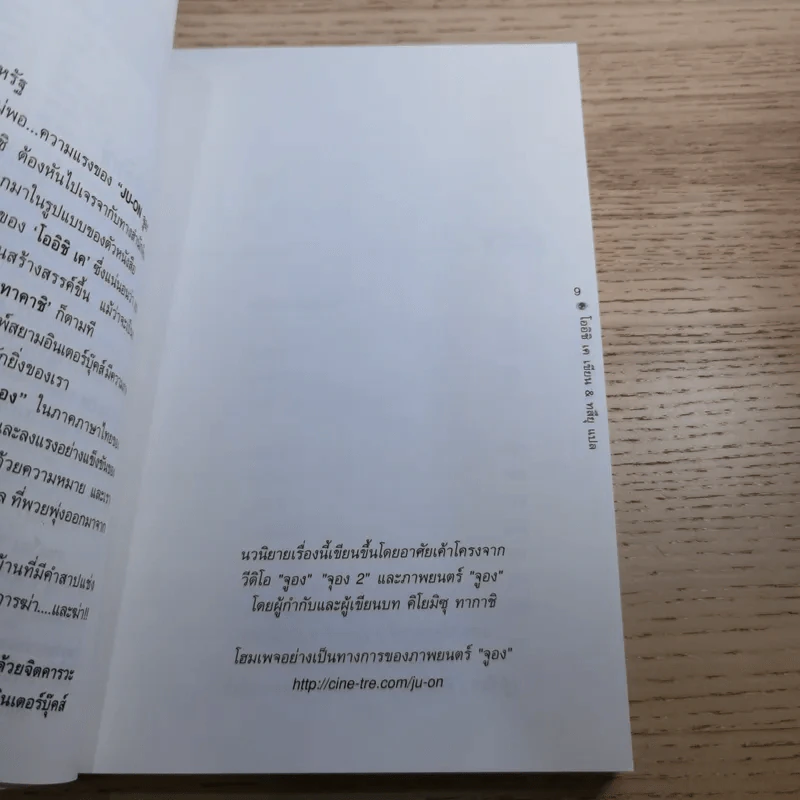 หรัฐ
พอ...ความแรงของ "JU-ON
ชิ ต้องหันไปเจรจากับทางสำนัก
กมาในรูปแบบของตัวหนังสือ
ของ 'โออิชิ เค' ซึ่งแน่นอนว่า
นสร้างสรรค์ขึ้น แม้ว่าจะเป็น
ทาคาชิ' ก็ตามที
พ์สยามอินเตอร์บุ๊คส์มีความ
ักยิ่งของเรา
อง" ในภาคภาษาไทยของ
และลงแรงอย่างแข็งขันของ
ด้วยความหมาย และเรา
ล ที่พวยพุ่งออกมาจาก
บ้านที่มีคำสาปแช่ง
การฆ่า....และฆ่า!!
ด้วยจิตคารวะ
ินเตอร์บุ๊คส์
๓ โออิชิ เค เขียน & ทสึยุ แปล
นวนิยายเรื่องนี้เขียนขึ้นโดยอาศัยเค้าโครงจาก
วีดิโอ "จูออง" "จุออง 2" และภาพยนตร์ "จูออง"
โดยผู้กำกับและผู้เขียนบท คิโยมิซุ ทากาชิ
โฮมเพจอย่างเป็นทางการของภาพยนตร์ "จูออง"
http://cine-tre.com/ju-on